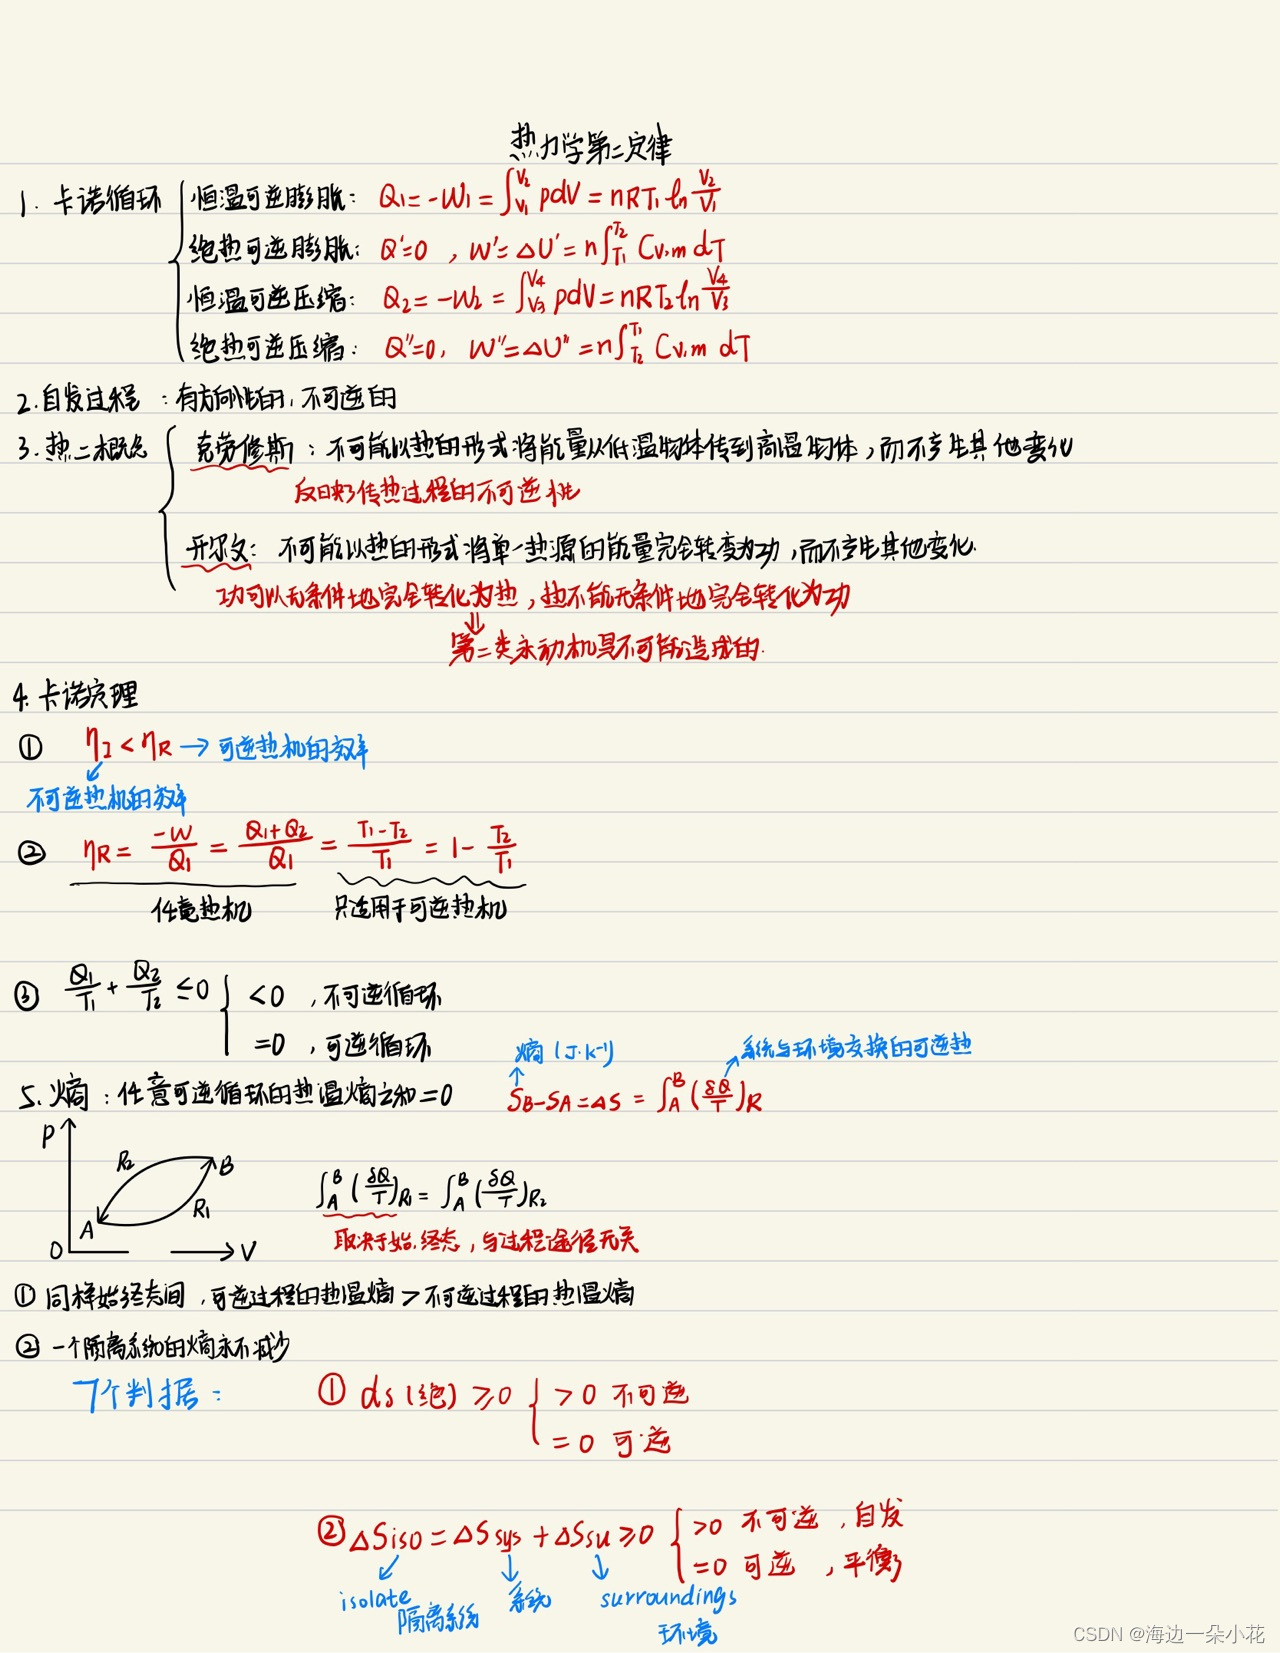 热力学第二定律
1. 卡诺循环 恒温可逆膨胀: Q₁=-W₁=∫_{V₁}^{V₂} pdV=nRT₁ ln V₂/V₁
绝热可逆膨胀: Q'=0 , W'=ΔU'=n∫_{T₁}^{T₂} Cv,m dT
恒温可逆压缩: Q₂=-W₂=∫_{V₃}^{V₄} pdV=nRT₂ ln V₄/V₃
绝热可逆压缩: Q''=0, W''=ΔU''=n∫_{T₂}^{T₁} Cv,m dT
2.自发过程 :有方向性的,不可逆的
3.热二概念 克劳修斯 : 不可能以热的形式将能量从低温物体传到高温物体,而不产生其他变化
反映了传热过程的不可逆性
开尔文: 不可能以热的形式将单一热源的能量完全转变为功,而不产生其他变化.
功可以无条件地完全转化为热,热不能无条件地完全转化为功
⇓
第二类永动机是不可能造成的.
4.卡诺定理
① η_I < η_R → 可逆热机的效率
不可逆热机的效率
② η_R = -W/Q₁ = (Q₁+Q₂)/Q₁ = (T₁-T₂)/T₁ = 1 - T₂/T₁
任意热机 只适用于可逆热机
③ Q₁/T₁ + Q₂/T₂ ≤0 <0 ,不可逆循环
=0 ,可逆循环
熵 (J·K⁻¹) 系统与环境交换的可逆热
5. 熵 : 任意可逆循环的热温熵之和=0 S_B-S_A=ΔS = ∫_A^B (δQ/T)_R
P
R₂ B
∫_A^B (δQ/T)_{R₁} = ∫_A^B (δQ/T)_{R₂}
A R₁
取决于始.终态,与过程途径无关
O V
① 同样始终态间 ,可逆过程的热温熵 > 不可逆过程的热温熵
② 一个隔离系统的熵永不减少
7个判据: ① ds(绝) ≥0 >0 不可逆
=0 可逆
② ΔSiso=ΔSsys+ΔSsu≥0 >0 不可逆 ,自发
=0 可逆 ,平衡
isolate 系统 surroundings
隔离系统 环境
CSDN @海边一朵小花